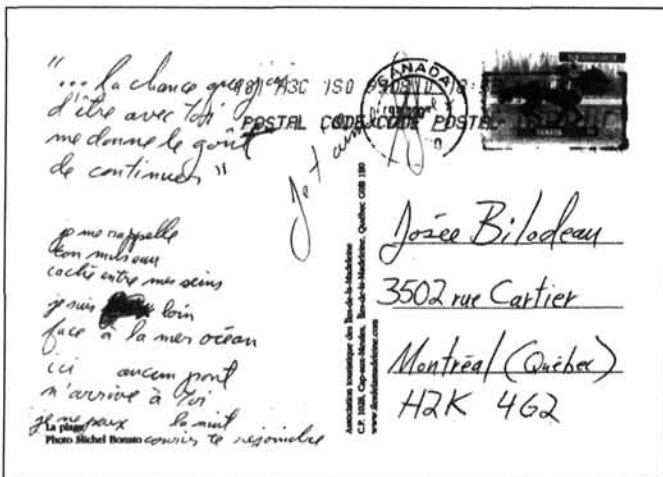 "... la chance que j'ai
d'être avec toi
me donne le goût
de continuer"
je me rappelle
ton museau
caché entre mes seins
je suis loin
face à la mer océan
ici aucun pont
n'arrive à toi
je ne peux la nuit
courir te rejoindre
La plage
Photo Michel Bonato
Je t'aime
Association touristique des Îles-de-la-Madeleine
C.P. 1028, Cap-aux-Meules, Îles-de-la-Madeleine, Québec G0B 1B0
www.ilesdelamadeleine.com
CANADA
H3C 1S0
POSTAL CODE CODE POSTAL
Josée Bilodeau
3502 rue Cartier
Montréal (Québec)
H2K 4G2